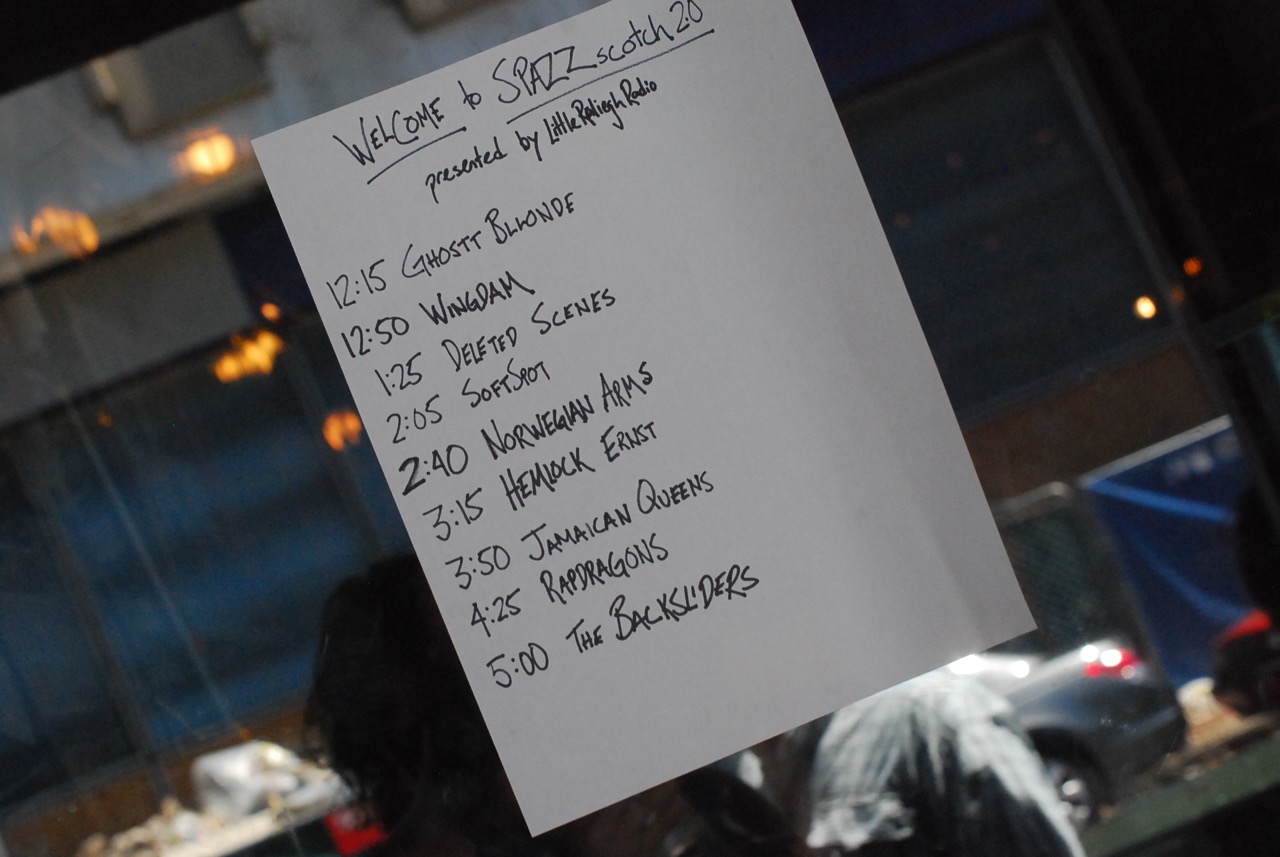 WELCOME to SPAZZscotch 2.0
presented by Little Raliegh Radio
12:15 GHOSTT BLLONDE
12:50 WINGDAM
1:25 DELETED SCENES
2:05 SOFTSPOT
2:40 NORWEGIAN ARMS
3:15 HEMLOCK ERNST
3:50 JAMAICAN QUEENS
4:25 RAPDRAGONS
5:00 THE BACKSLIDERS